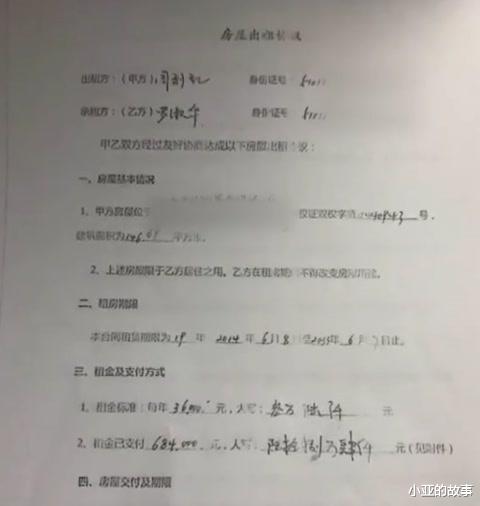 房屋出租协议
出租方：（甲方） 身份证号：
承租方：（乙方）罗淑华 身份证号：
甲乙双方经过友好协商达成以下房屋出租协议：
一、房屋基本情况
1、甲方房屋位于 权证双权字第 号，
建筑面积为146.61平方米。
2、上述房屋限于乙方居住之用，乙方在租期内不得改变房屋用途。
二、租房期限
本合同租赁期限为19年 2014年6月8日至2033年6月7日止。
三、租金及支付方式
1、租金标准：每年36,000元，大写：叁万陆仟 元
2、租金已支付684,000元，大写：陆拾捌万肆仟 元（见附件）
四、房屋交付及期限
小亚的故事